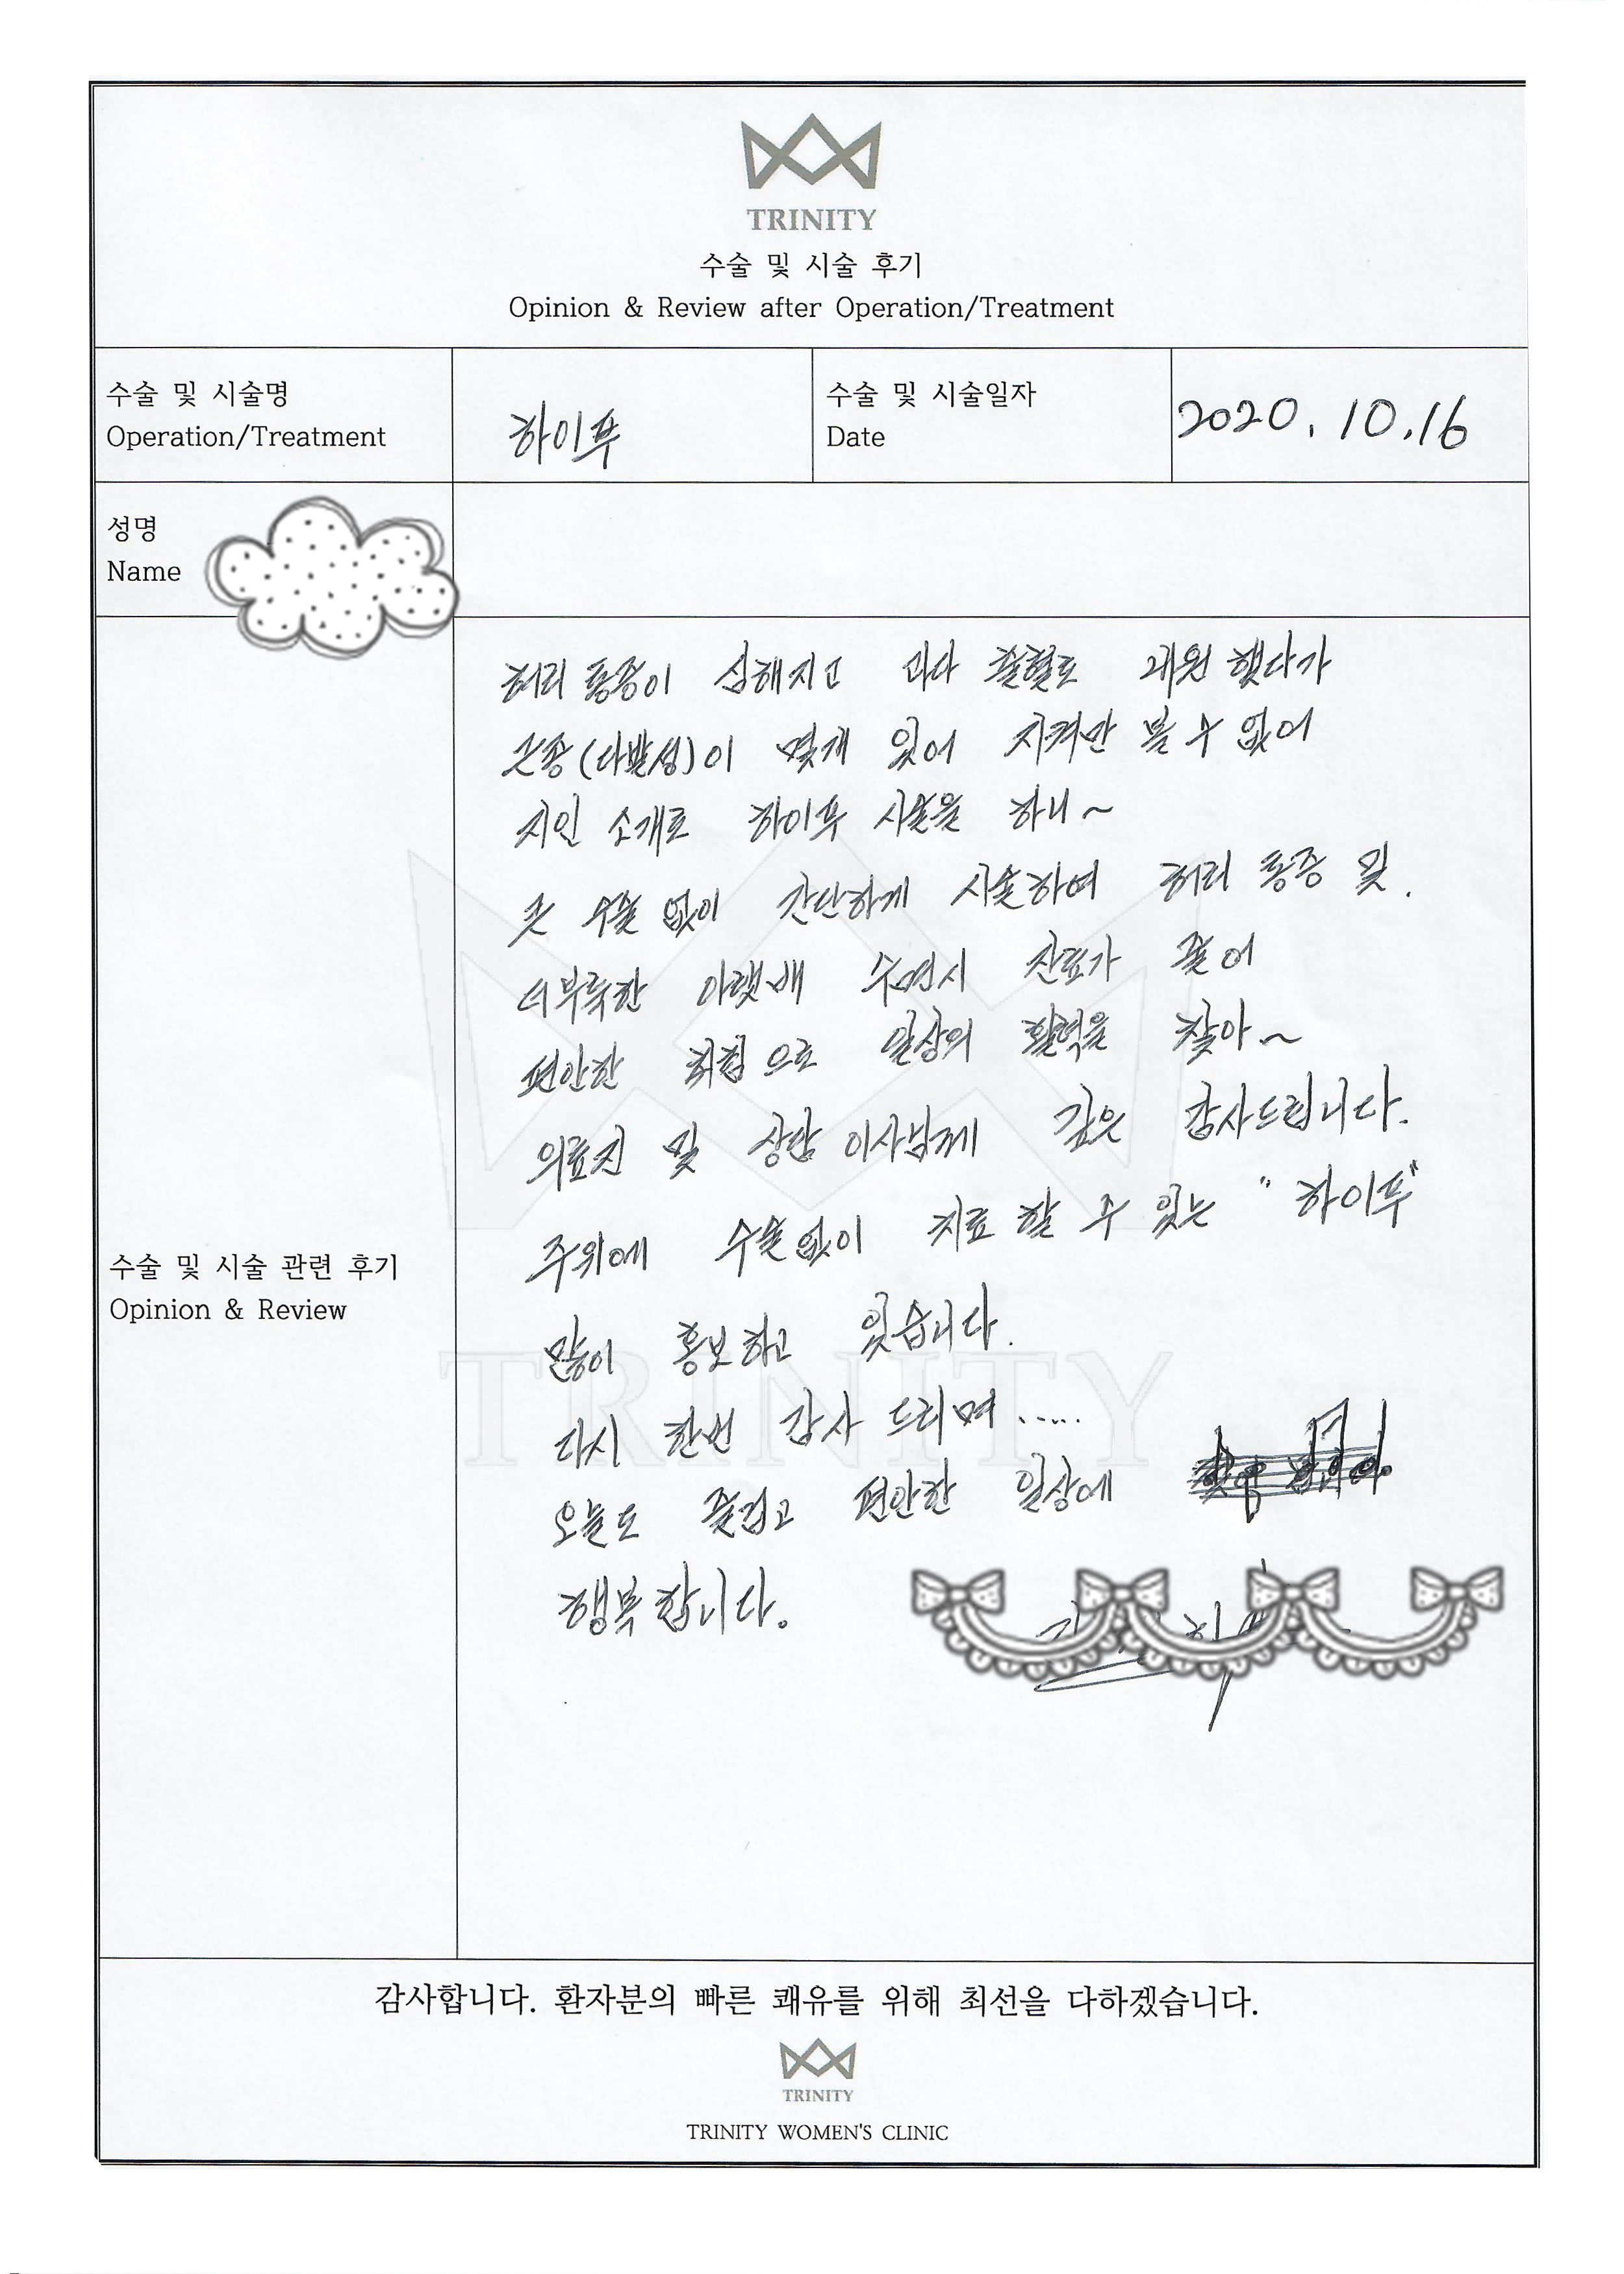 TRINITY
수술 및 시술 후기
Opinion & Review after Operation/Treatment
수술 및 시술명
Operation/Treatment
하이푸
수술 및 시술일자
Date
2020.10.16
성명
Name
수술 및 시술 관련 후기
Opinion & Review
허리 통증이 심해지고 과다 출혈로 내원 했다가
근종(다발성)이 몇개 있어 지켜만 볼 수 없어
지인 소개로 하이푸 시술을 하니~
큰 수술 없이 간단하게 시술하여 허리 통증 및.
더부룩한 아랫배 수면시 잔뇨가 줄어
편안한 취침으로 일상의 활력을 찾아~
의료진 및 상담 이사님께 깊은 감사드립니다.
주위에 수술없이 치료 할 수 있는 "하이푸"
많이 홍보하고 있습니다.
다시 한번 감사 드리며.....
오늘도 즐겁고 편안한 일상에
행복합니다.
TRINITY
감사합니다. 환자분의 빠른 쾌유를 위해 최선을 다하겠습니다.
TRINITY
TRINITY WOMEN'S CLINIC